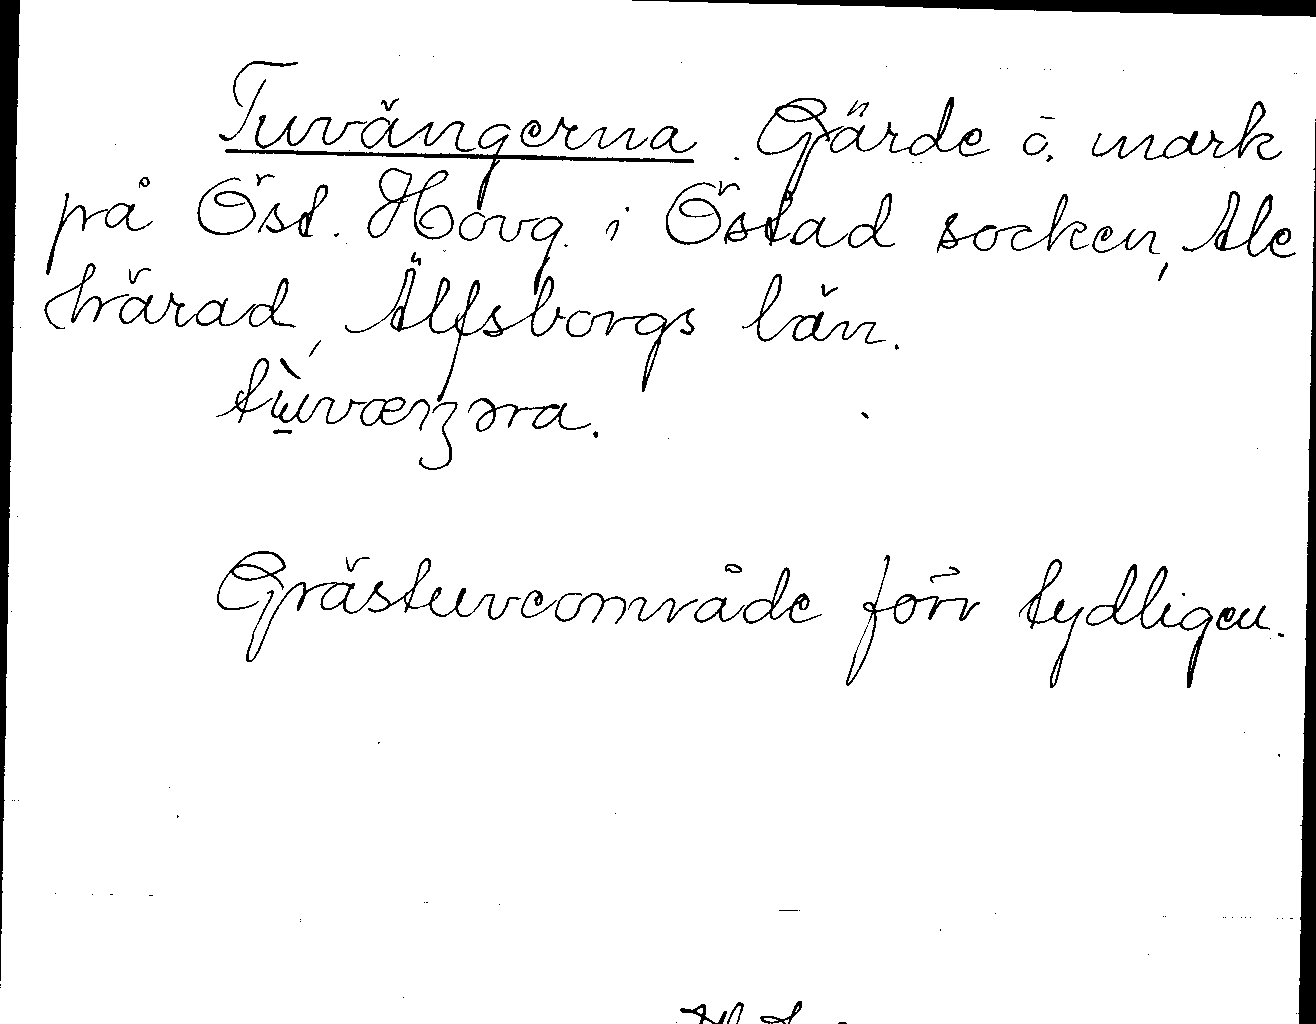 Tuvängerna. Gärde o. mark
på Öst. Hövg. i Östad socken, Ale
härad, Älfsborgs län.
tùvæŋəra.
Grästuveområde förr tydligen.